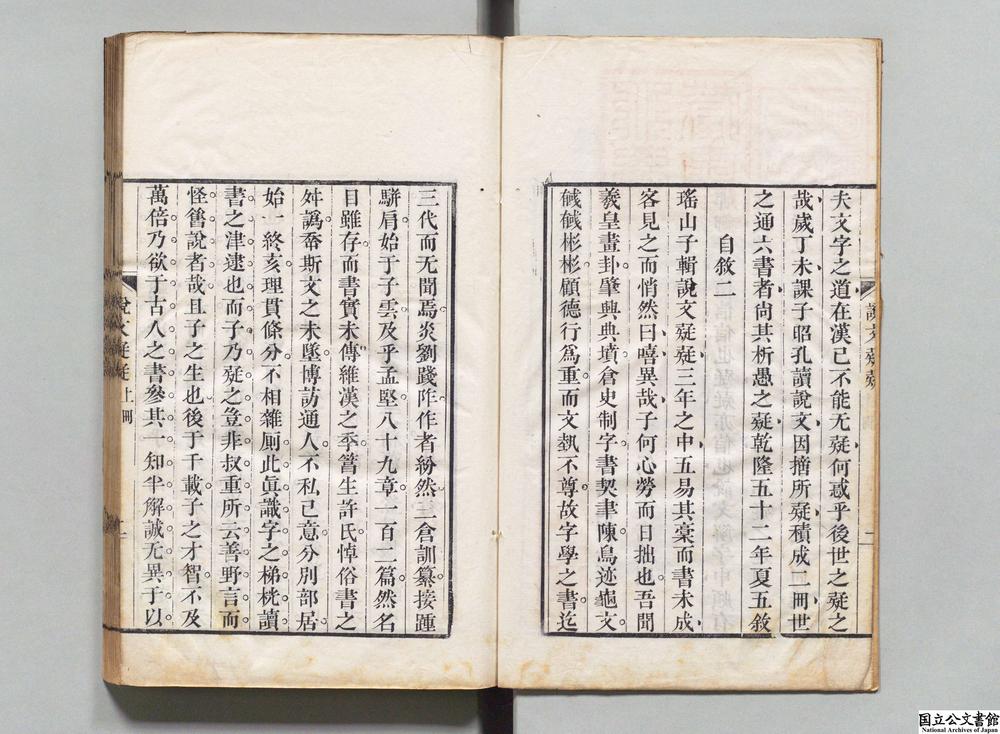 夫文字之道在漢已不能无疑何惑乎後世之疑之
哉歲丁未課子昭孔讀說文因擂所疑積成二冊世
之通六書者尙其析愚之疑乾隆五十二年夏五敘
自敘二
瑤山子輯說文疑疑三年之中五易其稾而書未成
客見之而悄然曰嘻異哉子何心勞而日拙也吾聞
羲皇畫卦肇興典墳倉史制字書契聿陳鳥迹龜文
彧彧彬彬顧德行爲重而文埶不尊故字學之書迄
三代而无聞焉炎劉踐阼作者紛然三倉訓纂按踵
騈肩始于子雲及乎孟堅八十九章一百二篇然名
目雖存而書實未傳維漢之季篤生許氏悼俗書之
舛譌奉斯文之未墜博訪通人不私己意分別部居
始一終亥理貫條分不相雜厠此眞識字之梯桄讀
書之津逮也而子乃疑之豈非叔重所云善野言而
怪舊說者哉且子之生也後于千載子之才智不及
萬倍乃欲于古人之書參其一知半解誠无異于以
說文疑疑
二
說文疑疑
上冊
二
国立公文書館
National Archives of Japan